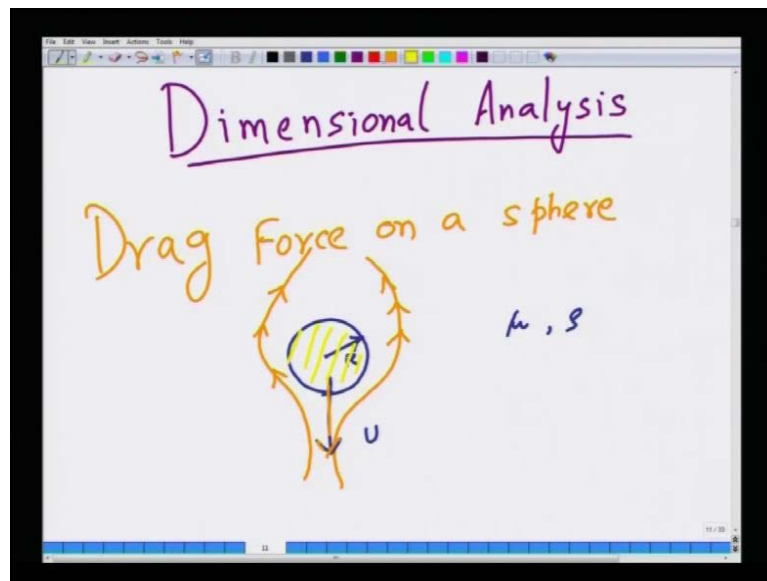 File Edit View Insert Actions Tools Help
B I
Dimensional Analysis
Drag Force on a sphere
μ, ρ
R
U
11 / 33
11